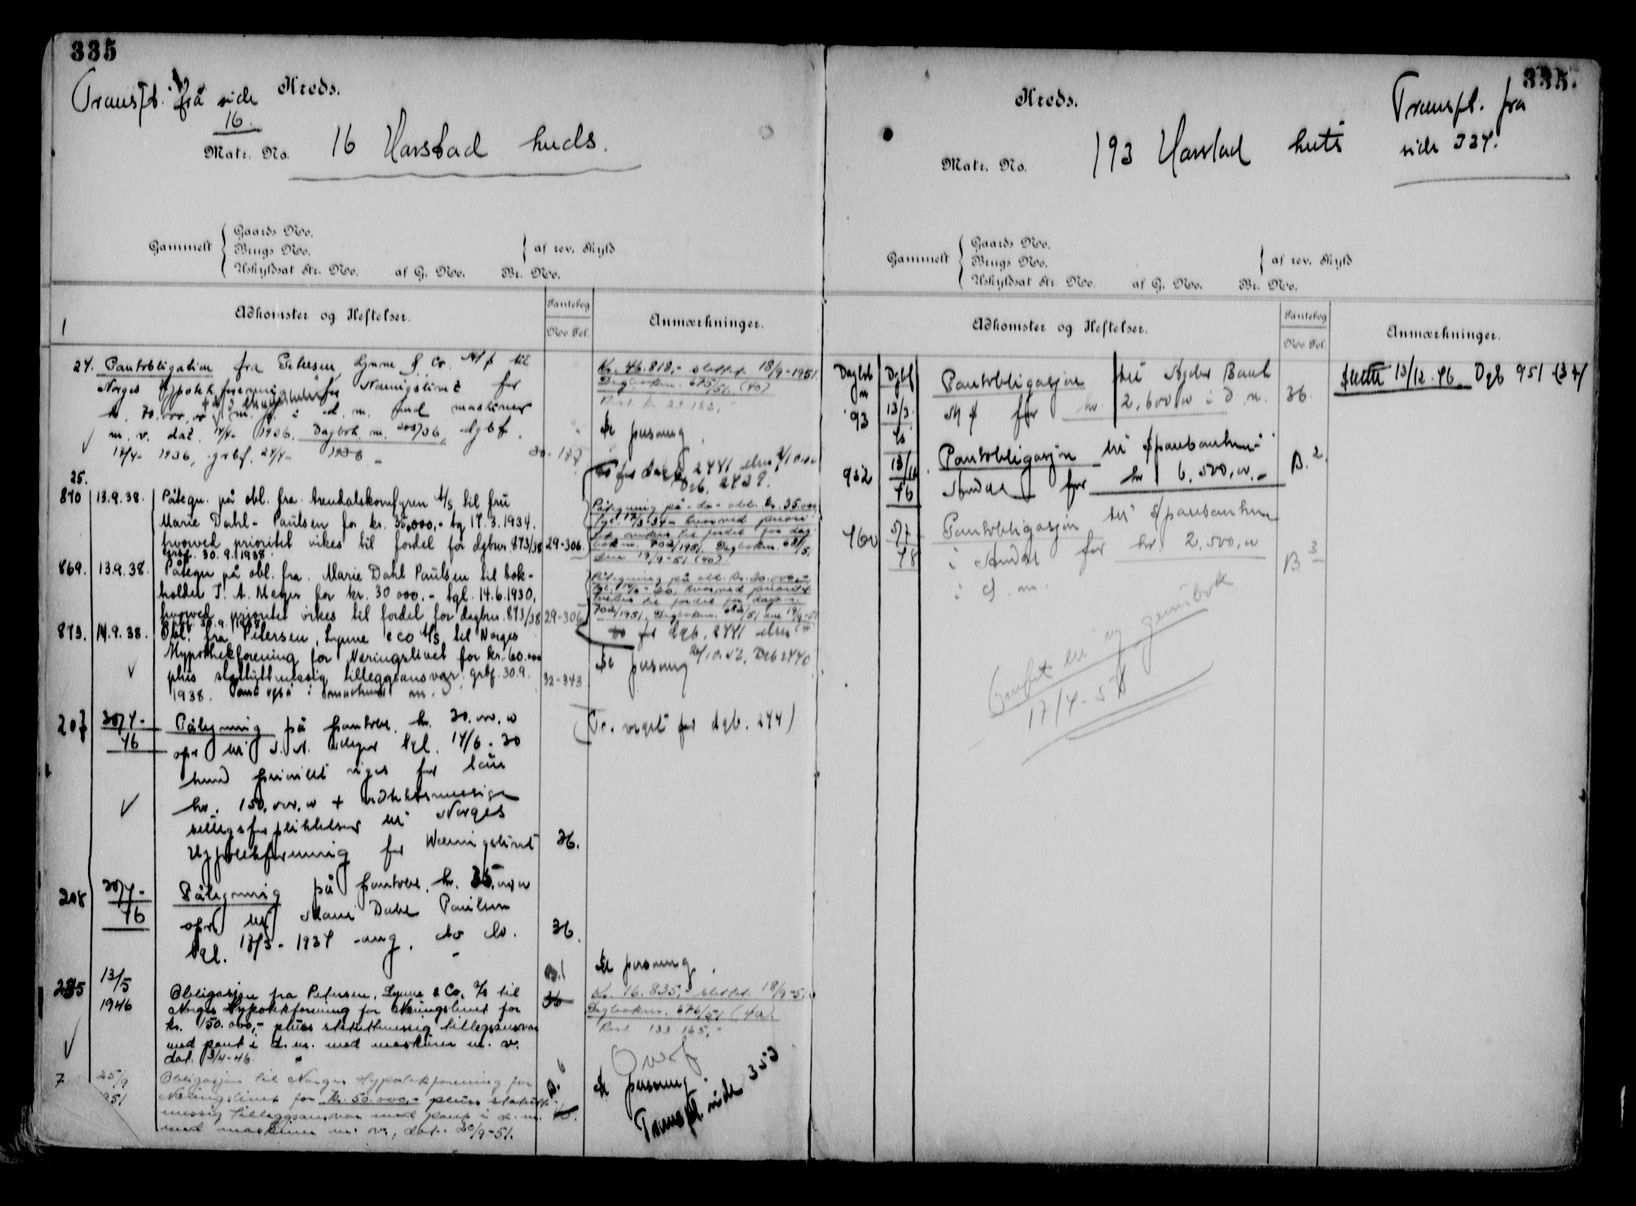 335
Transp. frå side
16.
Kreds.
Matr. No. 16 Harstad huds.
Gammelt
Gaards No.
Brugs No.
Uskyldsat Str. No. af G. No. Br. No.
af rev. Skyld
Adkomster og Heftelser.
Pantebog
No Fol.
Anmærkninger.
24. Pantobligation fra Petersen, Lynne & Co. A/S til
Norges Hypotekforening for Næringslivet for
kr. 70.000,00
i d. m. med maskiner
m. v. dat. 1936. Dagbok nr. /36, dgbf.
17/4- 1936, grbf. 24/4- 1936.
30-187
Kr. 46.818,- slettet 18/9-1951
Dagboknr. 675/51. (40)
Se pusning
for dagb. 2441
Dgb. 2439.
25.
870 13.9.38. Påtegn. på obl. fra Arendalskomfyren A/S til fru
Marie Dahl-Paulsen for kr. 35,000,- tgl 17.3.1934.
hvorved prioritet vikes til fordel for dagbnr. 873/38 29-306.
grbf. 30.9.1938.
Påtegning på do obl. kr. 35.000
tgl. 17/3-34 hvorved priori-
tet vikes til fordel for dag-
bok nr. 702/1951. Dagboknr. 681/51
den 19/9-51 (40)
869. 13.9.38. Påtegn på obl. fra Marie Dahl Paulsen til bok-
holder J. A. Meyer for kr. 30 000,- tgl. 14.6.1930,
hvorved prioritet vikes til fordel for dagbnr. 873/38 29-306
Påtegning på obl. kr. 30.000,-
tgl. 14/6-30, hvorved prioritet
vikes til fordel for dagb.nr.
702/1951. Dagboknr. 682/51 den 19/9-51
for dgb. 2441
873. 14.9.38. Obl. fra Petersen, Lynne & Co A/S, til Norges
Hypothekforening for Næringslivet for kr. 60.000
plus statuttmessig tilleggsansvar. grbf. 30.9.
1938. Pant også i maskiner m.v. 32-343
20/10.52, Dgb 2440
Se pusning
207 30/4-46 Påtegning på pantobl. kr. 30.000,00
opr til J. A. Meyer tgl. 14/6-30
hvorved prioritet viges for lån
kr. 150.000,00 + vedtektsmessige
tilleggsforpliktelser til Norges
Hypotekforening for Næringslivet 36.
(Pr. veget for dgb. 244)
208 30/4-46 Påtegning på pantobl. kr. 35.000,00
opr til Marie Dahl Paulsen
tgl. 17/3-1934 -ang. do do. 36
285 13/5 1946 Obligasjon fra Petersen, Lynne & Co. A/S til
Norges Hypotekforening for Næringslivet for
kr. 150.000,- pluss statuttmessig tilleggsansvar
med pant i d. m. med maskiner m. v.
dat. 3/4-46.
B.1
36
Se pusning.
Kr. 16.835,- slettet 18/9-51
Dagboknr. 676/51 (40).
Rest 133 165,-
Overf
7 25/9 951 Obligasjon til Norges Hypotekforening for
Næringslivet for kr. 50.000,- pluss statutt-
messig tilleggsansvar med pant i d. m.
med maskiner m. v., dat. 20/9-51.
B. 6
Se pusning.
Transp. side 353
335.
Kreds.
Transpl. fra
side 334.
Matr. No. 193 Harstad huts
Gammelt
Gaards No.
Brugs No.
Uskyldsat Str. No. af G. No. Br. No.
af rev. Skyld
Adkomster og Heftelser.
Pantebog
No Fol.
Anmærkninger.
Dagbok nr. Dgbf
93 13/3 45 Pantobligasjon til Agder Bank
A/S for kr. 2.600,00 i d. m. 36.
Slettet 13/12-46 Dgb 951 (37)
952 13/12 46 Pantobligasjon til Sparebanken
Arendal for kr 6.500,00 B. 2.
460 5/7 48 Pantobligasjon til Sparebanken
i Arendal for kr. 2.500,00 B 3
i d. m.
17/4-58